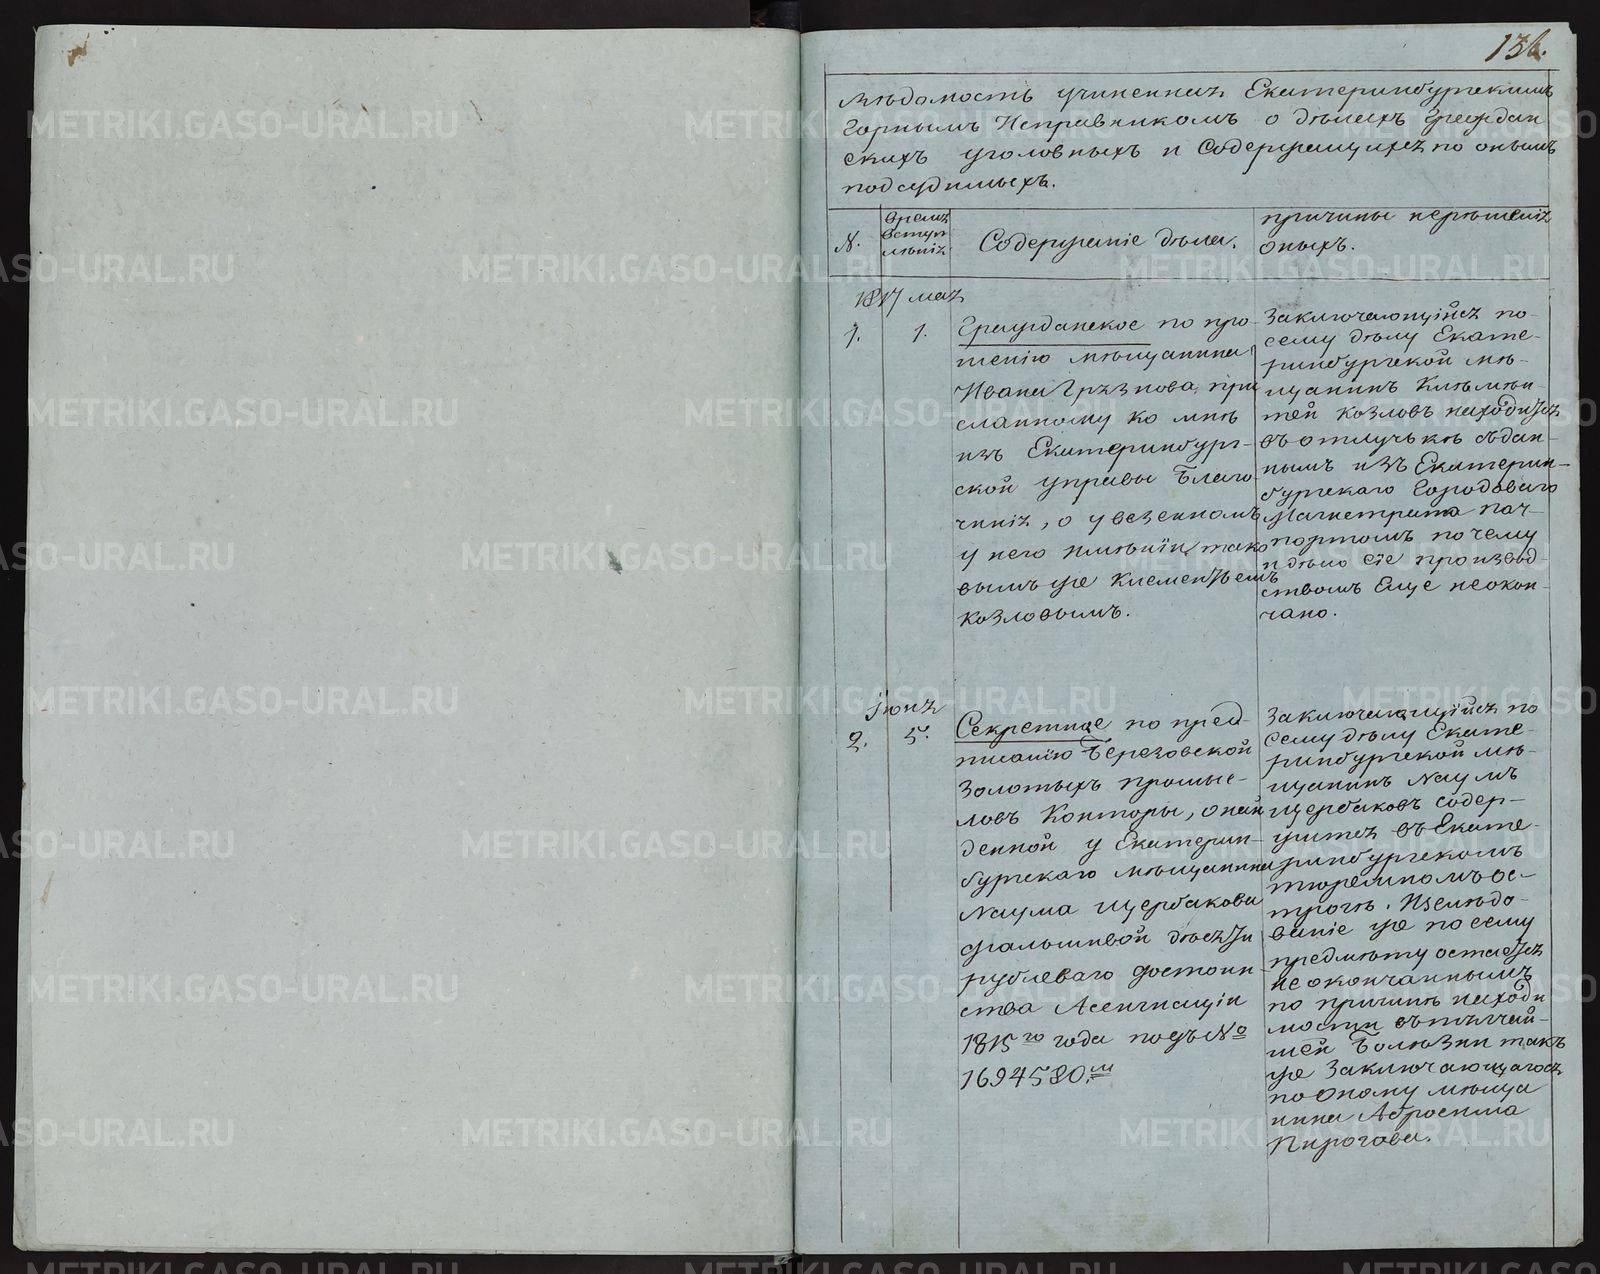 136.
Вѣдомость учиненная Екатеринбургскимъ
Горнымъ Исправникомъ о дѣлахъ Граждан
скихъ уголовныхъ и Содержащихся по онымъ
подсудимыхъ.
N.
Время
вступ
ленія
Содержаніе дѣла.
причины нерѣшенія
оныхъ.
1817 мая
1.
1.
Гражданское по про-
шенію мѣщанина
Ивана Грязнова, при
сланному ко мнѣ
изъ Екатеринбург-
ской управы Благо
чинія, о увезенномъ
у него имѣніи, тако
вымъ же Клементьемъ
Козловымъ.
Заключающійся по-
сему дѣлу Екате-
ринбургской мѣ-
щанинъ Клѣмѣн-
тей Козловъ находится
въ отлучькѣ съдан-
нымъ изъ Екатерин-
бургскаго Городоваго
Магистрата пач-
портомъ почему
и дѣло сіе производ-
ствомъ Еще неокон-
чано.
Іюня
2.
5.
Секретное по пред-
писанію Березовской
Золотыхъ промыс-
ловъ Конторы, о най
денной у Екатерин-
бургскаго мѣщанина
Наума Щербакова
фальшивой десяти
рублеваго достоин-
ства Асигнаціи
1815го года подъ №
1694580.м
Заключающійся по
Сему дѣлу Екате-
ринбургской мѣ-
щанинъ Наумъ
Щербаковъ содер-
жится въ Екате-
ринбургскомъ
тюремномъ ос-
трогѣ. Изслѣдо-
ваніе же по сему
предмѣту остается
неокончаннымъ
по причинѣ находи
мости въ тягчай-
шей Болѣзни такъ
же Заключающагося
по оному мѣща
нина Абросима
Пирогова.
METRIKI.GASO-URAL.RU